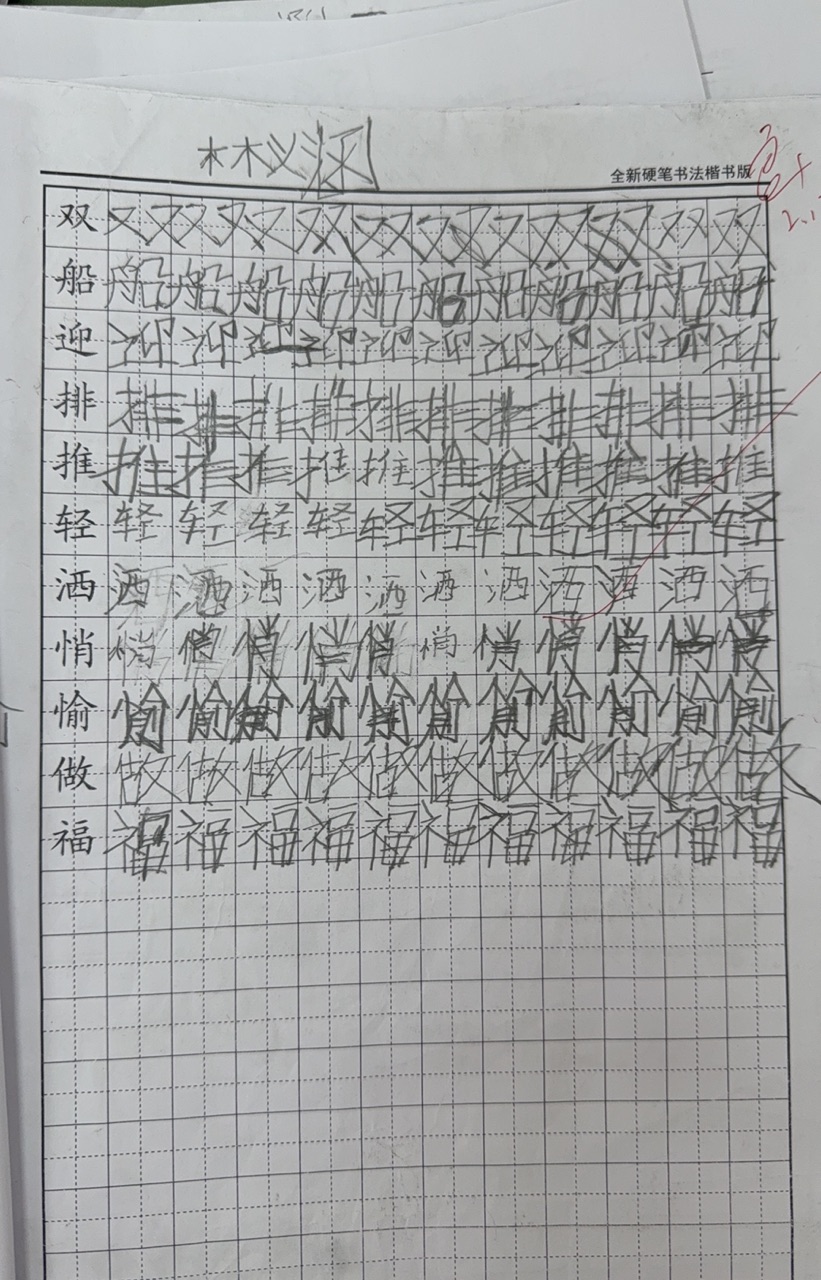 林义涵
全新硬笔书法楷书版
双 双 双 双 双 双 双 双 双 双 双 双
船 船 船 船 船 船 船 船 船 船 船 船
迎 迎 迎 迎 迎 迎 迎 迎 迎 迎 迎 迎
排 排 排 排 排 排 排 排 排 排 排 排
推 推 推 推 推 推 推 推 推 推 推 推
轻 轻 轻 轻 轻 轻 轻 轻 轻 轻 轻 轻
洒 洒 洒 洒 洒 洒 洒 洒 洒 洒 洒 洒
悄 悄 悄 悄 悄 悄 悄 悄 悄 悄 悄 悄
愉 愉 愉 愉 愉 愉 愉 愉 愉 愉 愉 愉
做 做 做 做 做 做 做 做 做 做 做 做
福 福 福 福 福 福 福 福 福 福 福 福